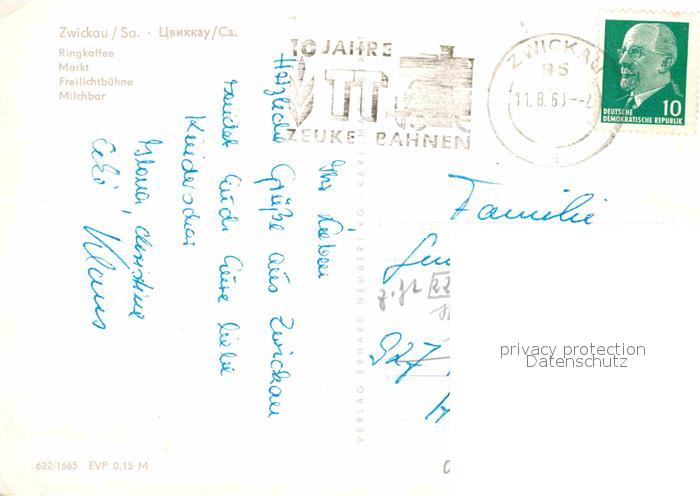 Zwickau / Sa. · Цвиккау/Са.
Ringkaffee
Markt
Freilichtbühne
Milchbar
10 JAHRE
TT
ZEUKE BAHNEN
ZWICKAU
95
11.8.63
a
10
DEUTSCHE
DEMOKRATISCHE REPUBLIK
Ihr Lieben
Herzliche Grüße aus Zwickau
sendet Euch Eure liebe
Kinderschar
Christine
Klaus
VERLAG ERHARD NEUBERT KG · KARL
Familie
privacy protection
Datenschutz
622/1665 EVP 0,15 M